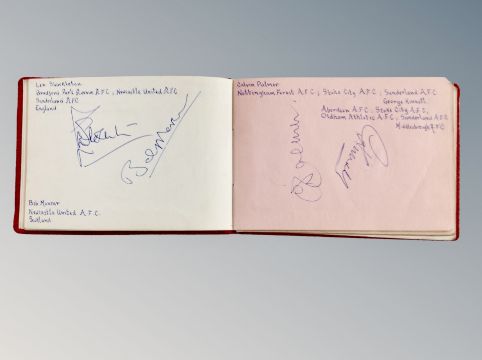 Len Shackleton
Bradford Park Avenue A.F.C ; Newcastle United A.F.C
Sunderland A.F.C
England
Bob Moncur
Newcastle United A.F.C.
Scotland
Calvin Palmer
Nottingham Forest A.F.C ; Stoke City A.F.C ; Sunderland A.F.C
George Kinnell
Aberdeen A.F.C ; Stoke City A.F.C,
Oldham Athletic A.F.C ; Sunderland A.F.C
Middlesbrough A.F.C